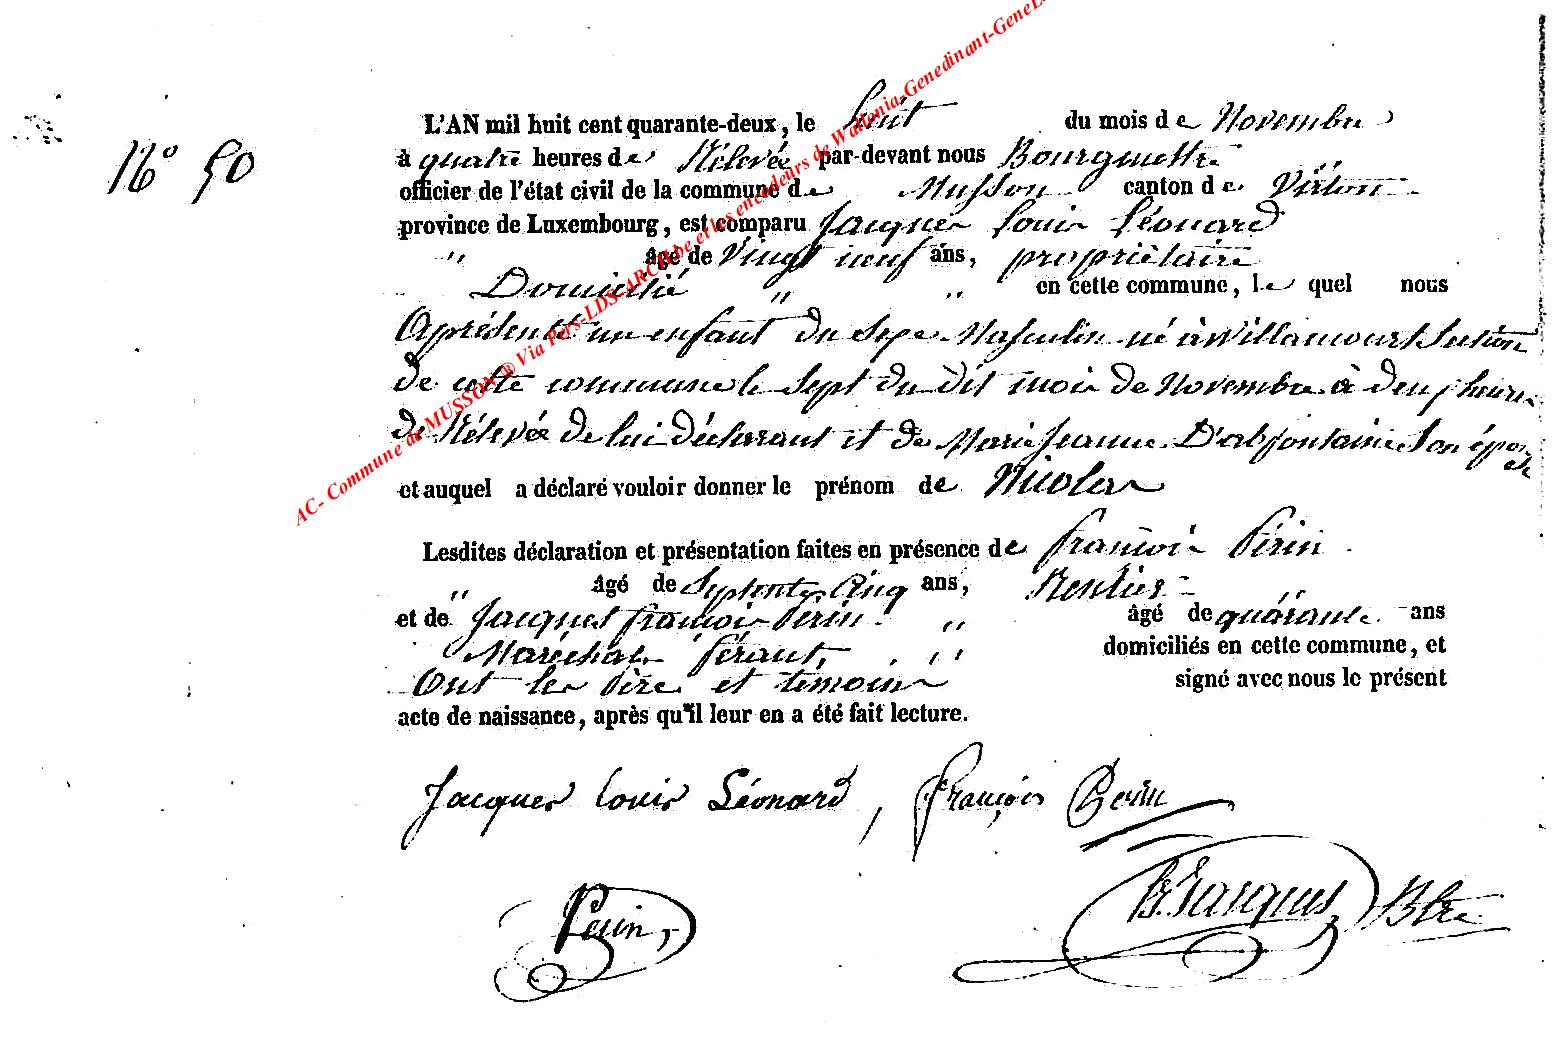 N° 50
L'AN mil huit cent quarante-deux, le huit du mois de Novembre
à quatre heures de Rélevée par-devant nous Bourgmettre
officier de l'état civil de la commune de Musson canton de Virton
province de Luxembourg, est comparu Jacques Louis Léonard
" âgé de Vingt neuf ans, propriètaire
Domicilié " " en cette commune, le quel nous
Aprésenté un enfant du sexe Masculin né à Willancourt Section
de cette commune le Sept du dit mois de Novembre à deux heures
de Rélevée de lui déclarant et de Marie Jeanne D'abfontaine Son épouse
et auquel a déclaré vouloir donner le prénom de Nicolas
Lesdites déclaration et présentation faites en présence de françois Périn
" âgé de Septente Cinq ans, Rentier "
et de Jacques françois Périn " âgé de quarante ans
Maréchal férant, " domiciliés en cette commune, et
Ont les Père et témoins signé avec nous le présent
acte de naissance, après qu'il leur en a été fait lecture.
Jacques Louis Léonard, François Perin
Perin,
Jacques Btre
AC- Commune de MUSSON ® Via Pers-LDS-ARCH.be et les encodeurs de Wallonia-Genedinant-GeneL